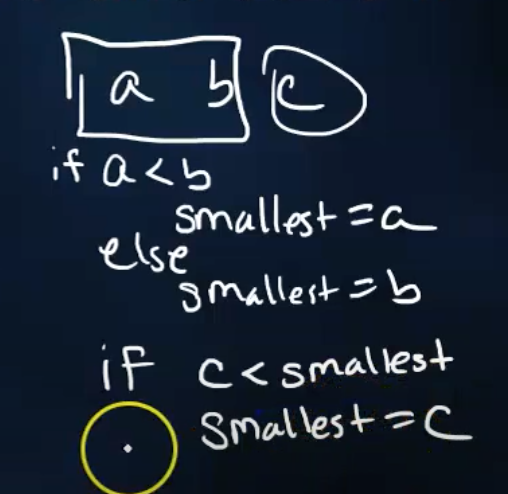 a b c
if a < b
smallest = a
else
smallest = b
if c < smallest
smallest = c